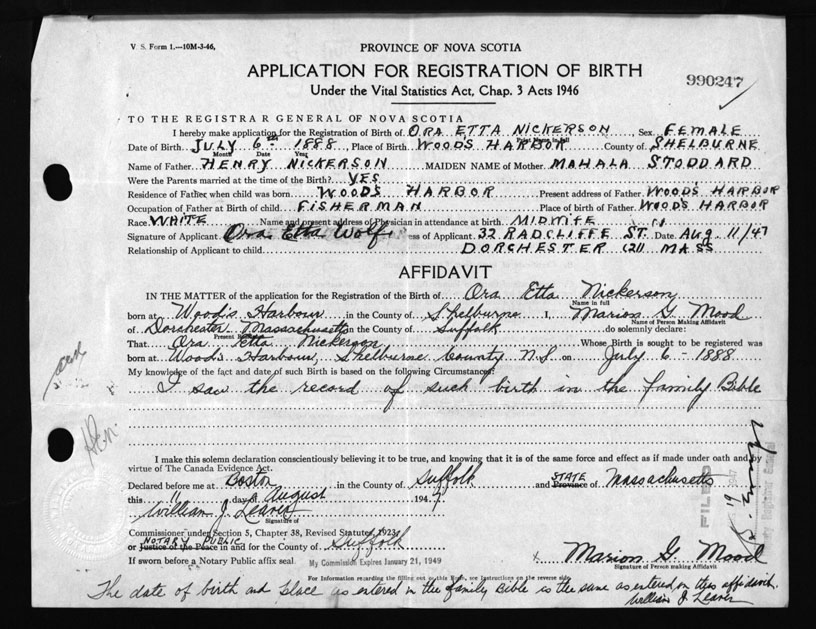 V. S. Form 1.—10M-3-46.
PROVINCE OF NOVA SCOTIA
APPLICATION FOR REGISTRATION OF BIRTH
Under the Vital Statistics Act, Chap. 3 Acts 1946
990247
TO THE REGISTRAR GENERAL OF NOVA SCOTIA
I hereby make application for the Registration of Birth of ORA ETTA NICKERSON, Sex FEMALE
Date of Birth JULY 6th 1888, Place of Birth WOODS HARBOR County of SHELBURNE
Month Date Year
Name of Father HENRY NICKERSON MAIDEN NAME of Mother MAHALA STODDARD
Were the Parents married at the time of the Birth? YES
Residence of Father when child was born WOODS HARBOR Present address of Father WOODS HARBOR
Occupation of Father at Birth of child FISHERMAN Place of birth of Father WOODS HARBOR
Race WHITE Name and present address of Physician in attendance at birth MIDWIFE
Signature of Applicant Ora Etta Wolfe ess of Applicant 32 RADCLIFFE ST. Date Aug 11/47
Relationship of Applicant to child DORCHESTER (21) MASS
AFFIDAVIT
IN THE MATTER of the application for the Registration of the Birth of Ora Etta Nickerson
Name in full
born at Wood's Harbour in the County of Shelburne I, Marion G. Mood
Name of Person Making Affidavit
of Dorchester Massachusetts in the County of Suffolk do solemnly declare:
That Ora Etta Nickerson Whose Birth is sought to be registered was
born at Wood's Harbour, Shelburne County N.S. on July 6 - 1888
My knowledge of the fact and date of such Birth is based on the following Circumstances:
I saw the record of such birth in the family Bible
I make this solemn declaration conscientiously believing it to be true, and knowing that it is of the same force and effect as if made under oath and by
virtue of The Canada Evidence Act.
Declared before me at Boston in the County of Suffolk and STATE Province of Massachusetts
this 11 day of August 1947
William J. Leaver
Signature of
Commissioner under Section 5, Chapter 38, Revised Statutes, 1923,
NOTARY PUBLIC
or Justice of the Peace in and for the County of Suffolk
If sworn before a Notary Public affix seal My Commission Expires January 21, 1949
x Marion G. Mood
Signature of Person making Affidavit
For Information regarding the filling out of this Form, see Instructions on the reverse side.
The date of birth and place as entered in the family Bible is the same as entered on this affidavit.
William J. Leaver
FILED